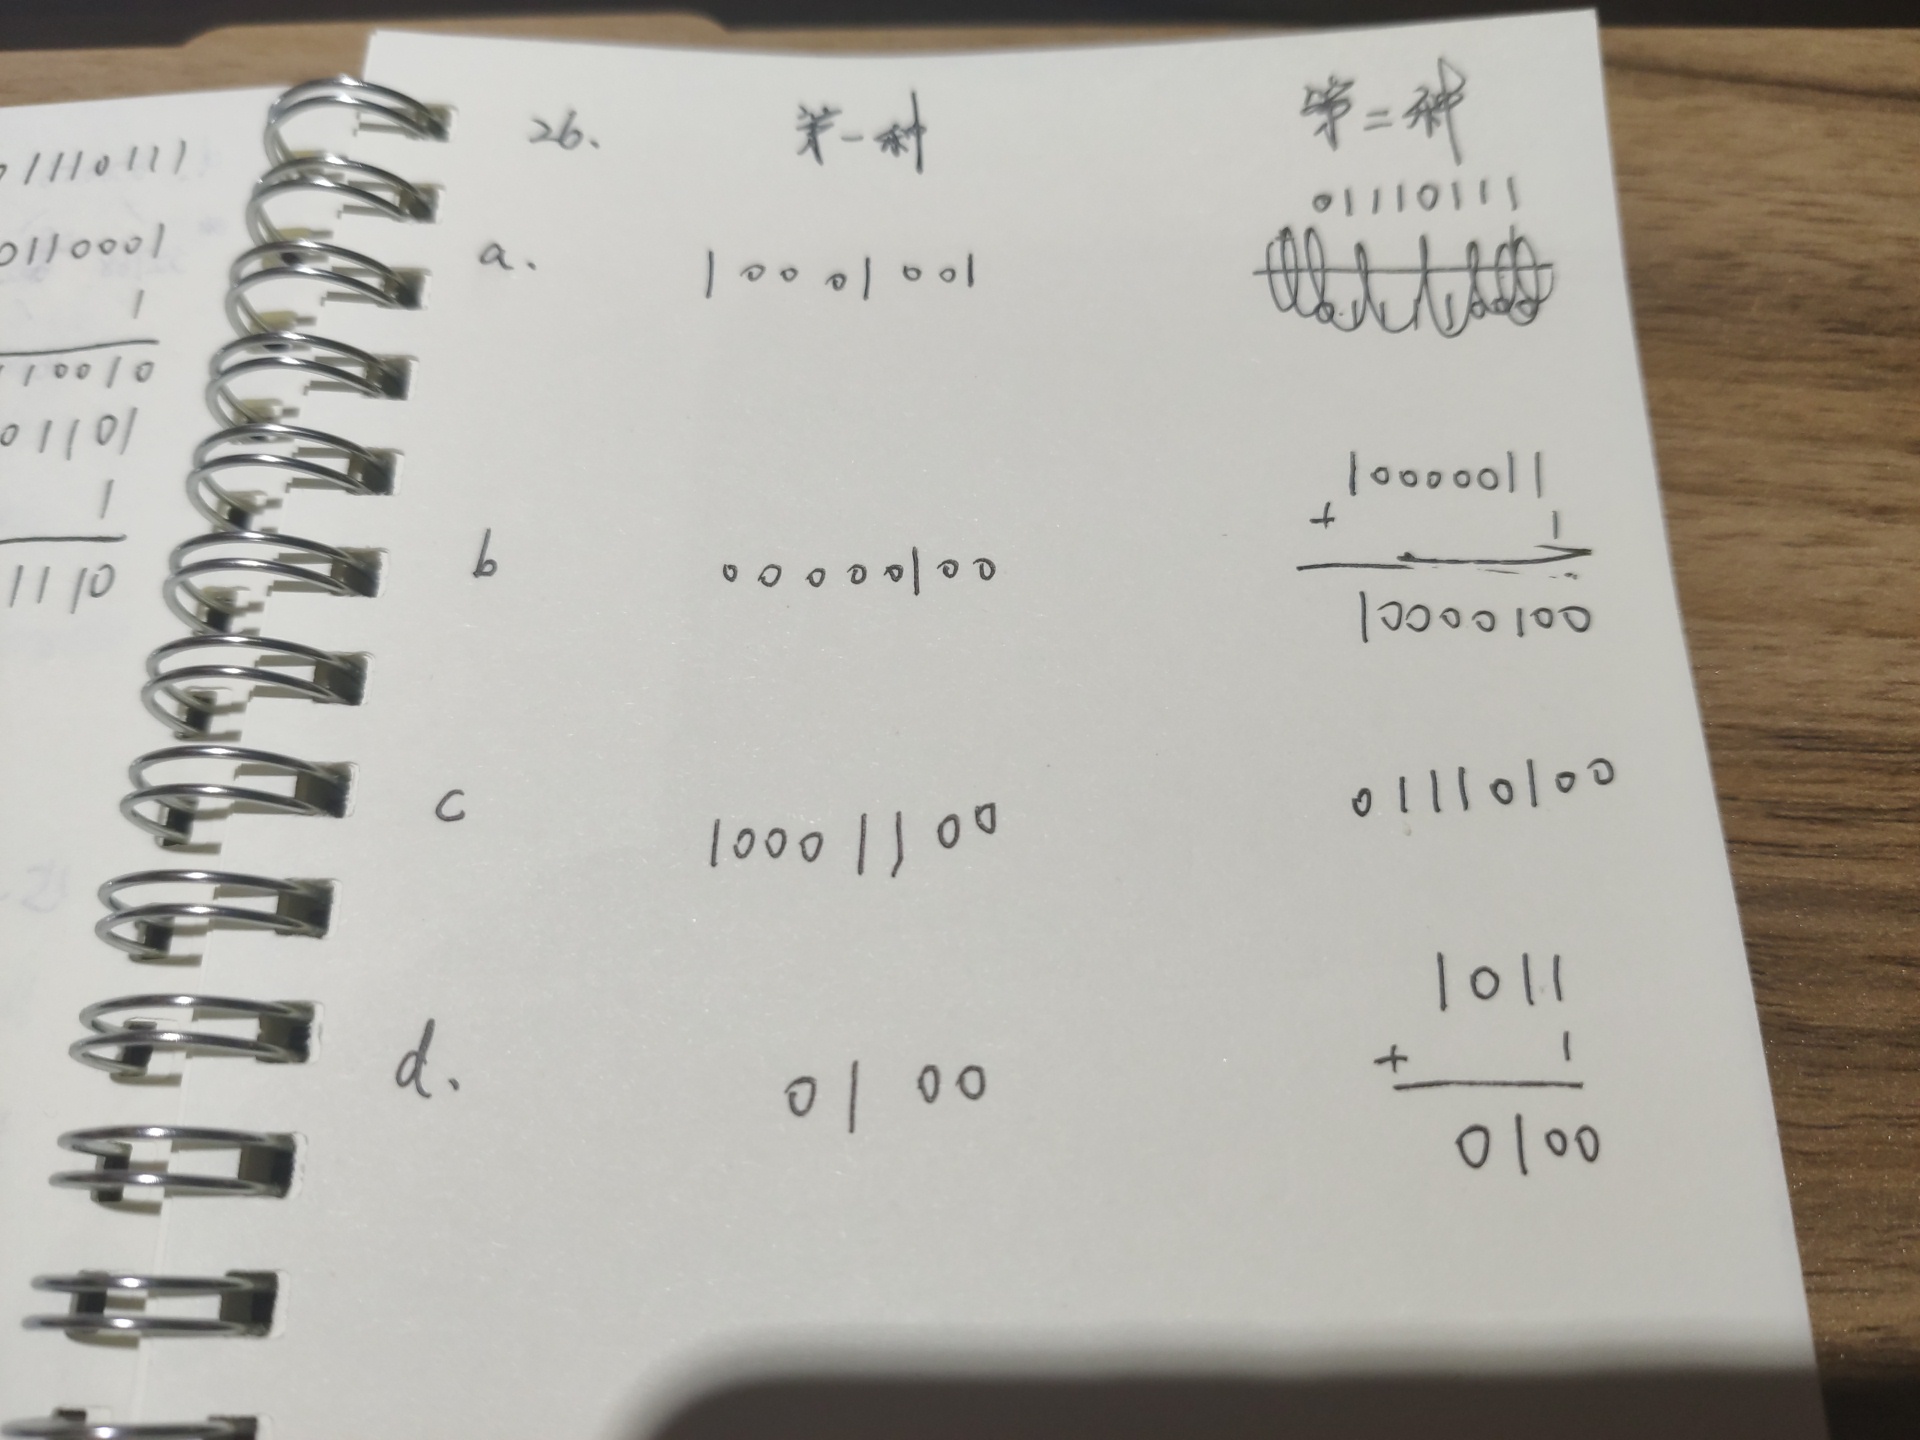 1110111
0110001
1
10010
01101
1
1110
26. 第一种 第二种
01110111
a. 10001001
b 00000100
10000011
+ 1
10000100
c 10001100 01110100
d. 0100
1011
+ 1
0100